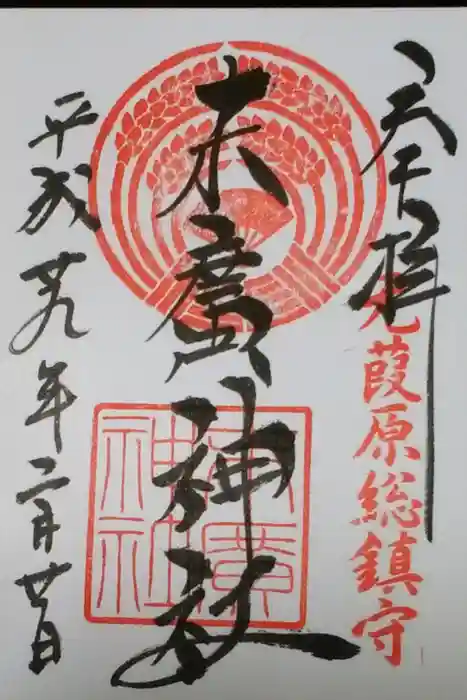 奉拝
元葭原総鎮守
末廣神社
末廣
神社
平成廿九年二月廿日